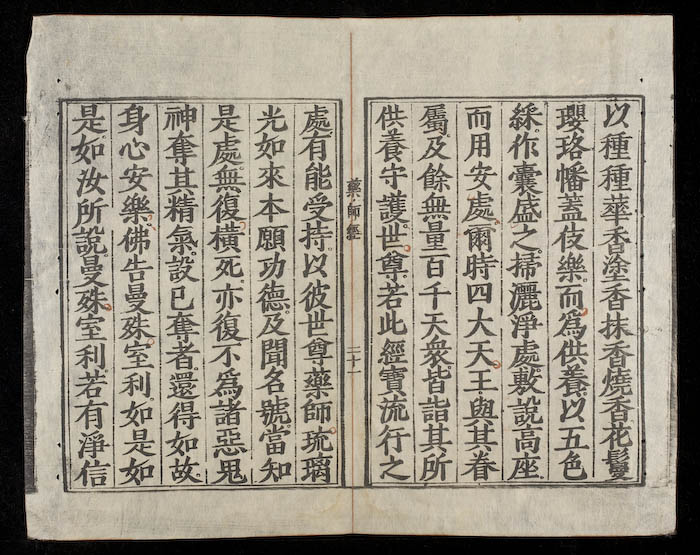 以種種華香塗香抹香燒香花鬘
瓔珞幡蓋伎樂而爲供養以五色
綵作囊盛之掃灑淨處敷說高座
而用安處爾時四大天王與其眷
屬及餘無量百千天衆皆詣其所
供養守護世尊若此經寶流行之
藥師經
二十
處有能受持以彼世尊藥師琉璃
光如來本願功德及聞名號當知
是處無復橫死亦復不爲諸惡鬼
神奪其精氣設已奪者還得如故
身心安樂佛告曼殊室利如是如
是如汝所說曼殊室利若有淨信